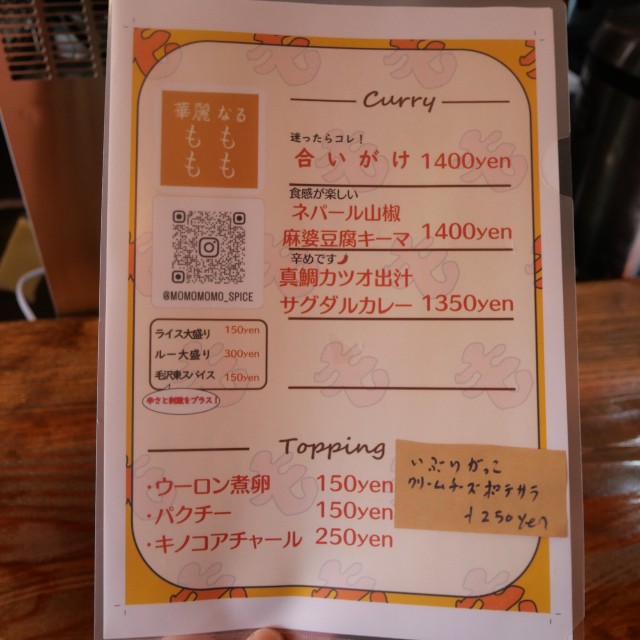 華麗なる
もも
もも
@MOMOMOMO_SPICE
ライス大盛り 150yen
ルー大盛り 300yen
毛沢東スパイス 150yen
辛さと刺激をプラス!
Curry
迷ったらコレ!
合いがけ 1400yen
食感が楽しい
ネパール山椒
麻婆豆腐キーマ 1400yen
辛めです
真鯛カツオ出汁
サグダルカレー 1350yen
Topping
・ウーロン煮卵 150yen
・パクチー 150yen
・キノコアチャール 250yen
いぶりがっこ
クリームチーズポテサラ
+250yen